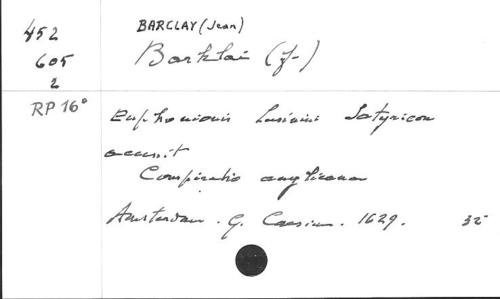 452
605
2
RP 16°
BARCLAY (Jean)
Barklai (J-)
Euphormionis Lusinini Satyricon
accessit
Conspiratio anglicana
Amsterdam. G. Caesius. 1629. 32